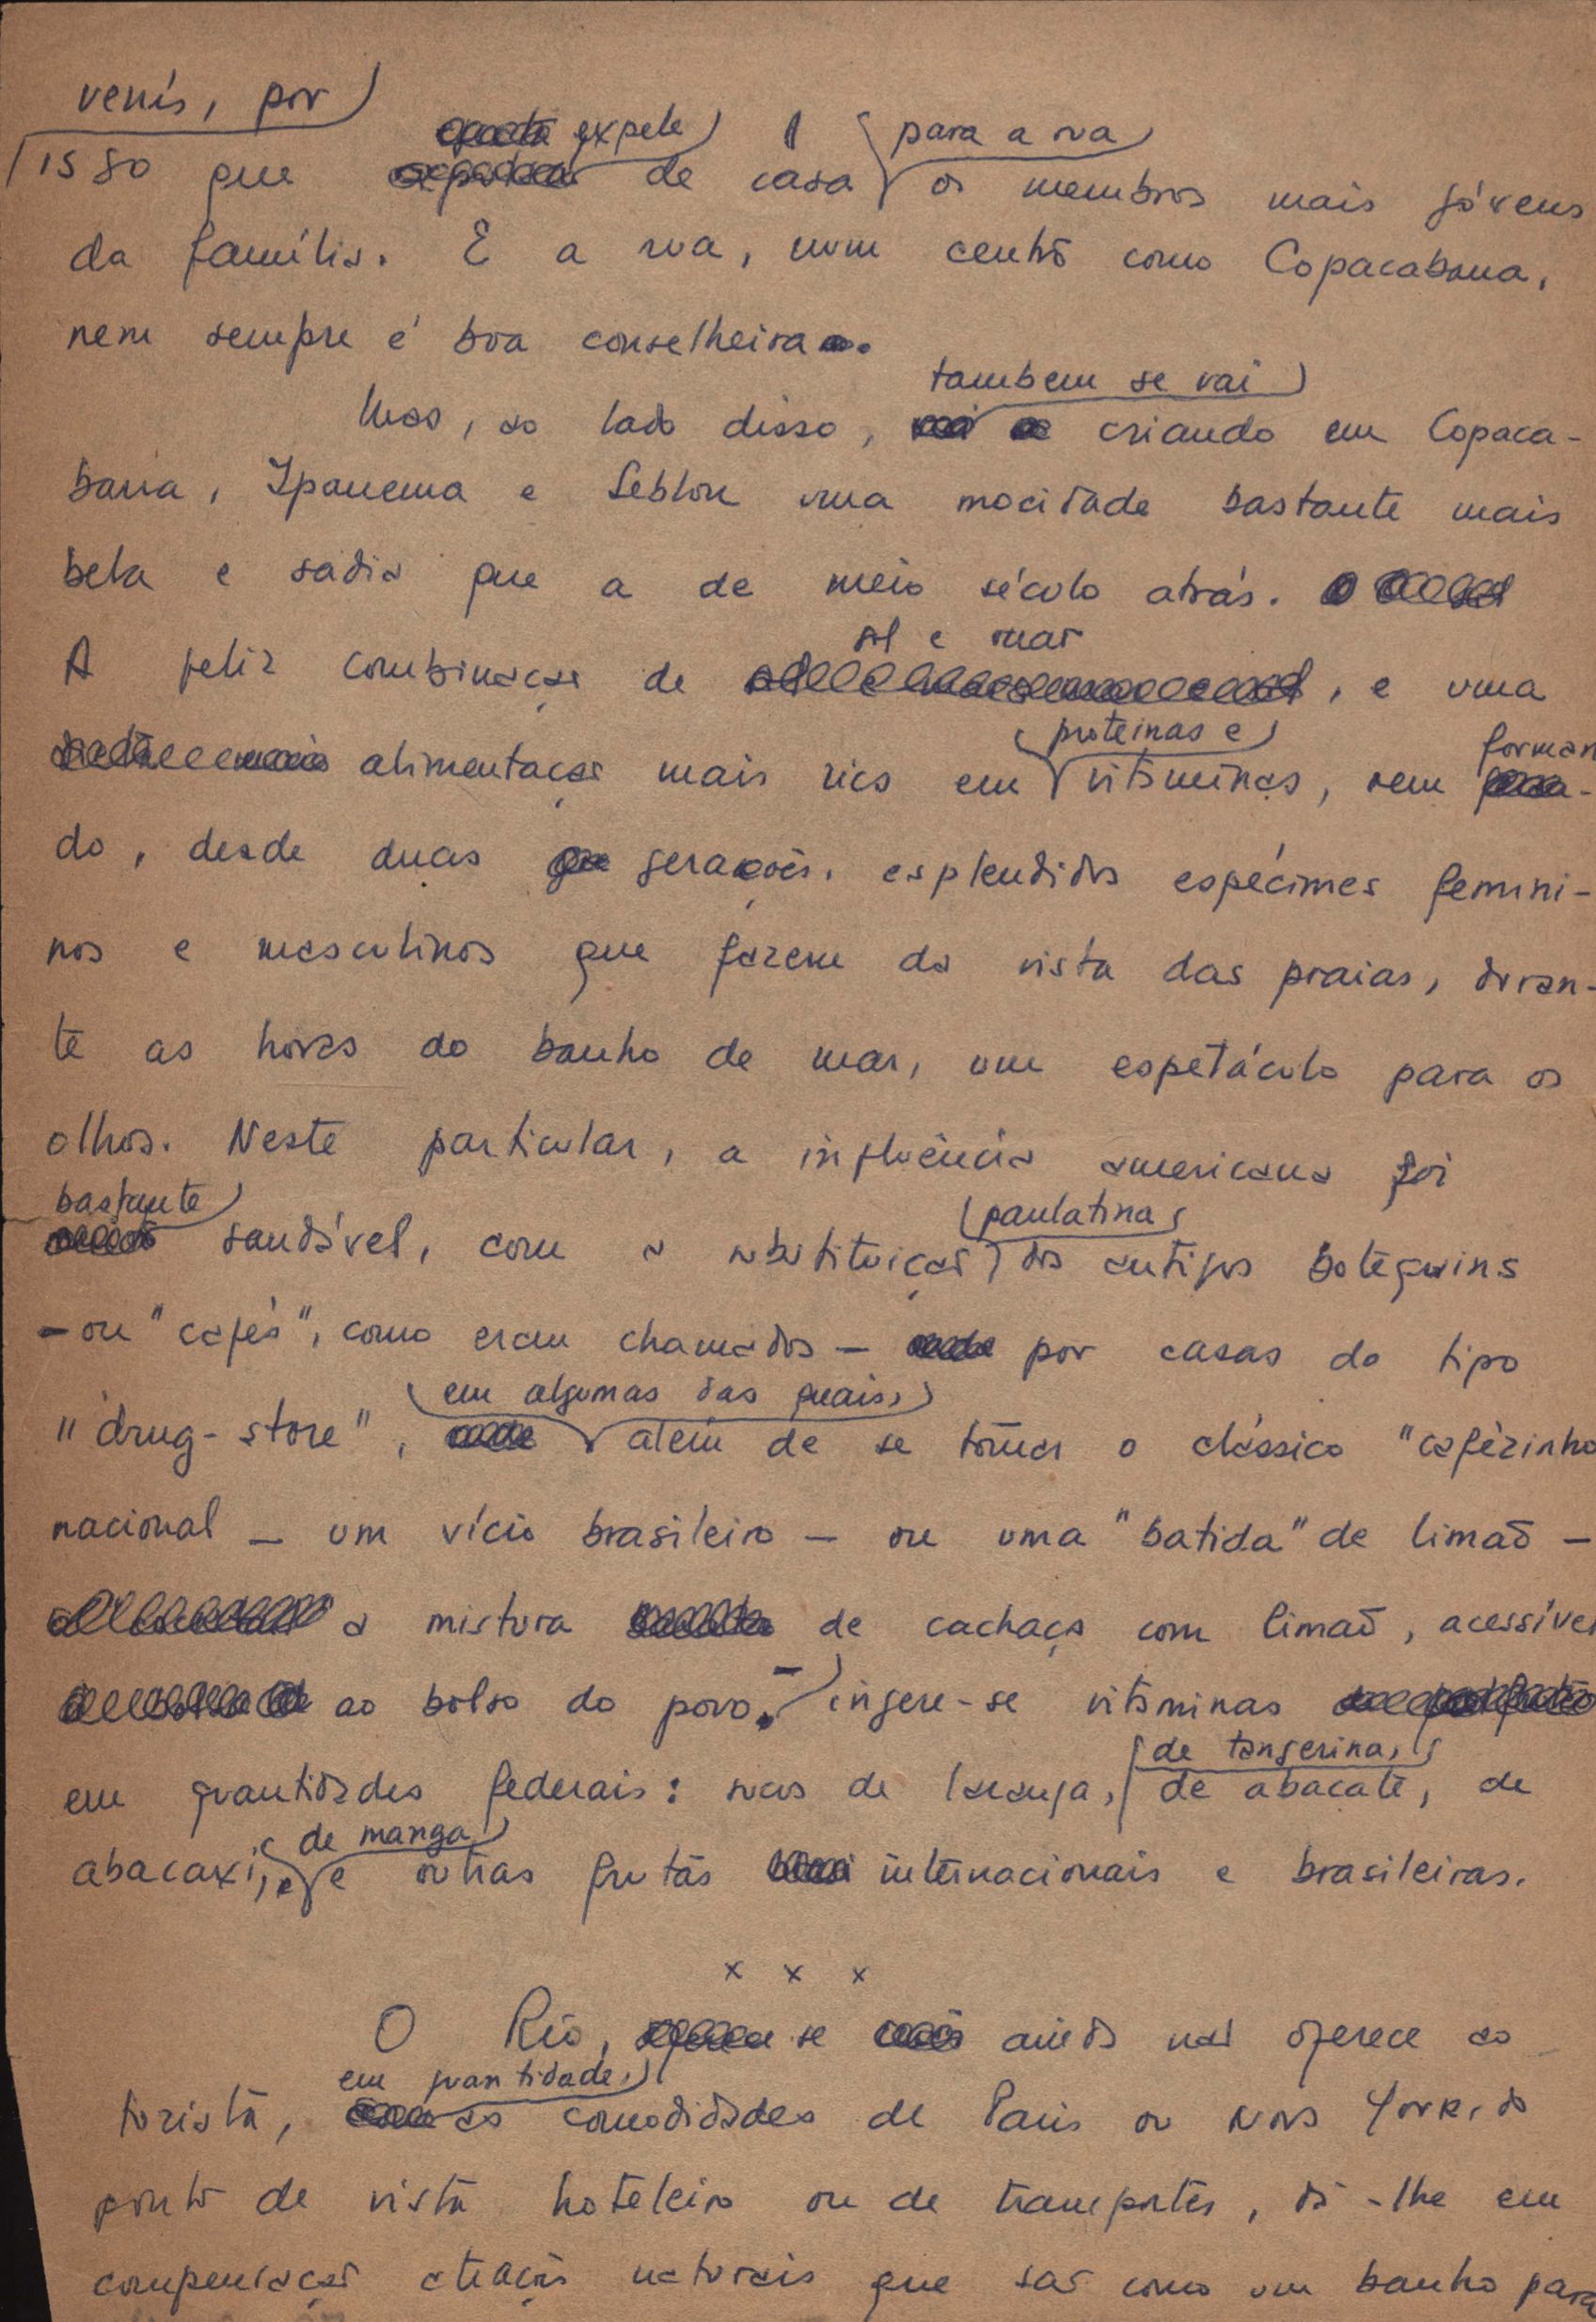 venís, por
isso que expele de casa para a rua os membros mais jóvens
da família. E a rua, num centro como Copacabana,
nem sempre é boa conselheira.
Mas, ao lado disso, tambem se vai criando em Copaca-
bana, Ipanema e Leblon uma mocidade bastante mais
bela e sadia que a de meio século atrás.
A feliz combinação de sol e mar, e uma
alimentação mais rica em proteinas e vitaminas, vem forman
do, desde duas gerações, esplendidos espécimes femini-
nos e masculinos que fazem da vista das praias, duran-
te as horas do banho de mar, um espetáculo para os
olhos. Neste particular, a influência americana foi
bastante saudável, com a substituição paulatina dos antigos botequins
- ou "cafés", como eram chamados - por casas do tipo
"drug-store", em algumas das quais, além de se tomar o clássico "cafèzinho
nacional - um vício brasileiro - ou uma "batida" de limão -
a mistura de cachaça com limão, acessível
ao bolso do povo - ingere-se vitaminas
em quantidades federais: sucos de laranja, de tangerina, de abacate, de
abacaxi, de manga e outras frutas internacionais e brasileiras.
x x x
O Rio, se ainda não oferece ao
turista, em quantidade, as comodidades de Paris ou Nova York, do
ponto de vista hoteleiro ou de transportes, dá-lhe em
compensação atrações naturais que são como um banho para